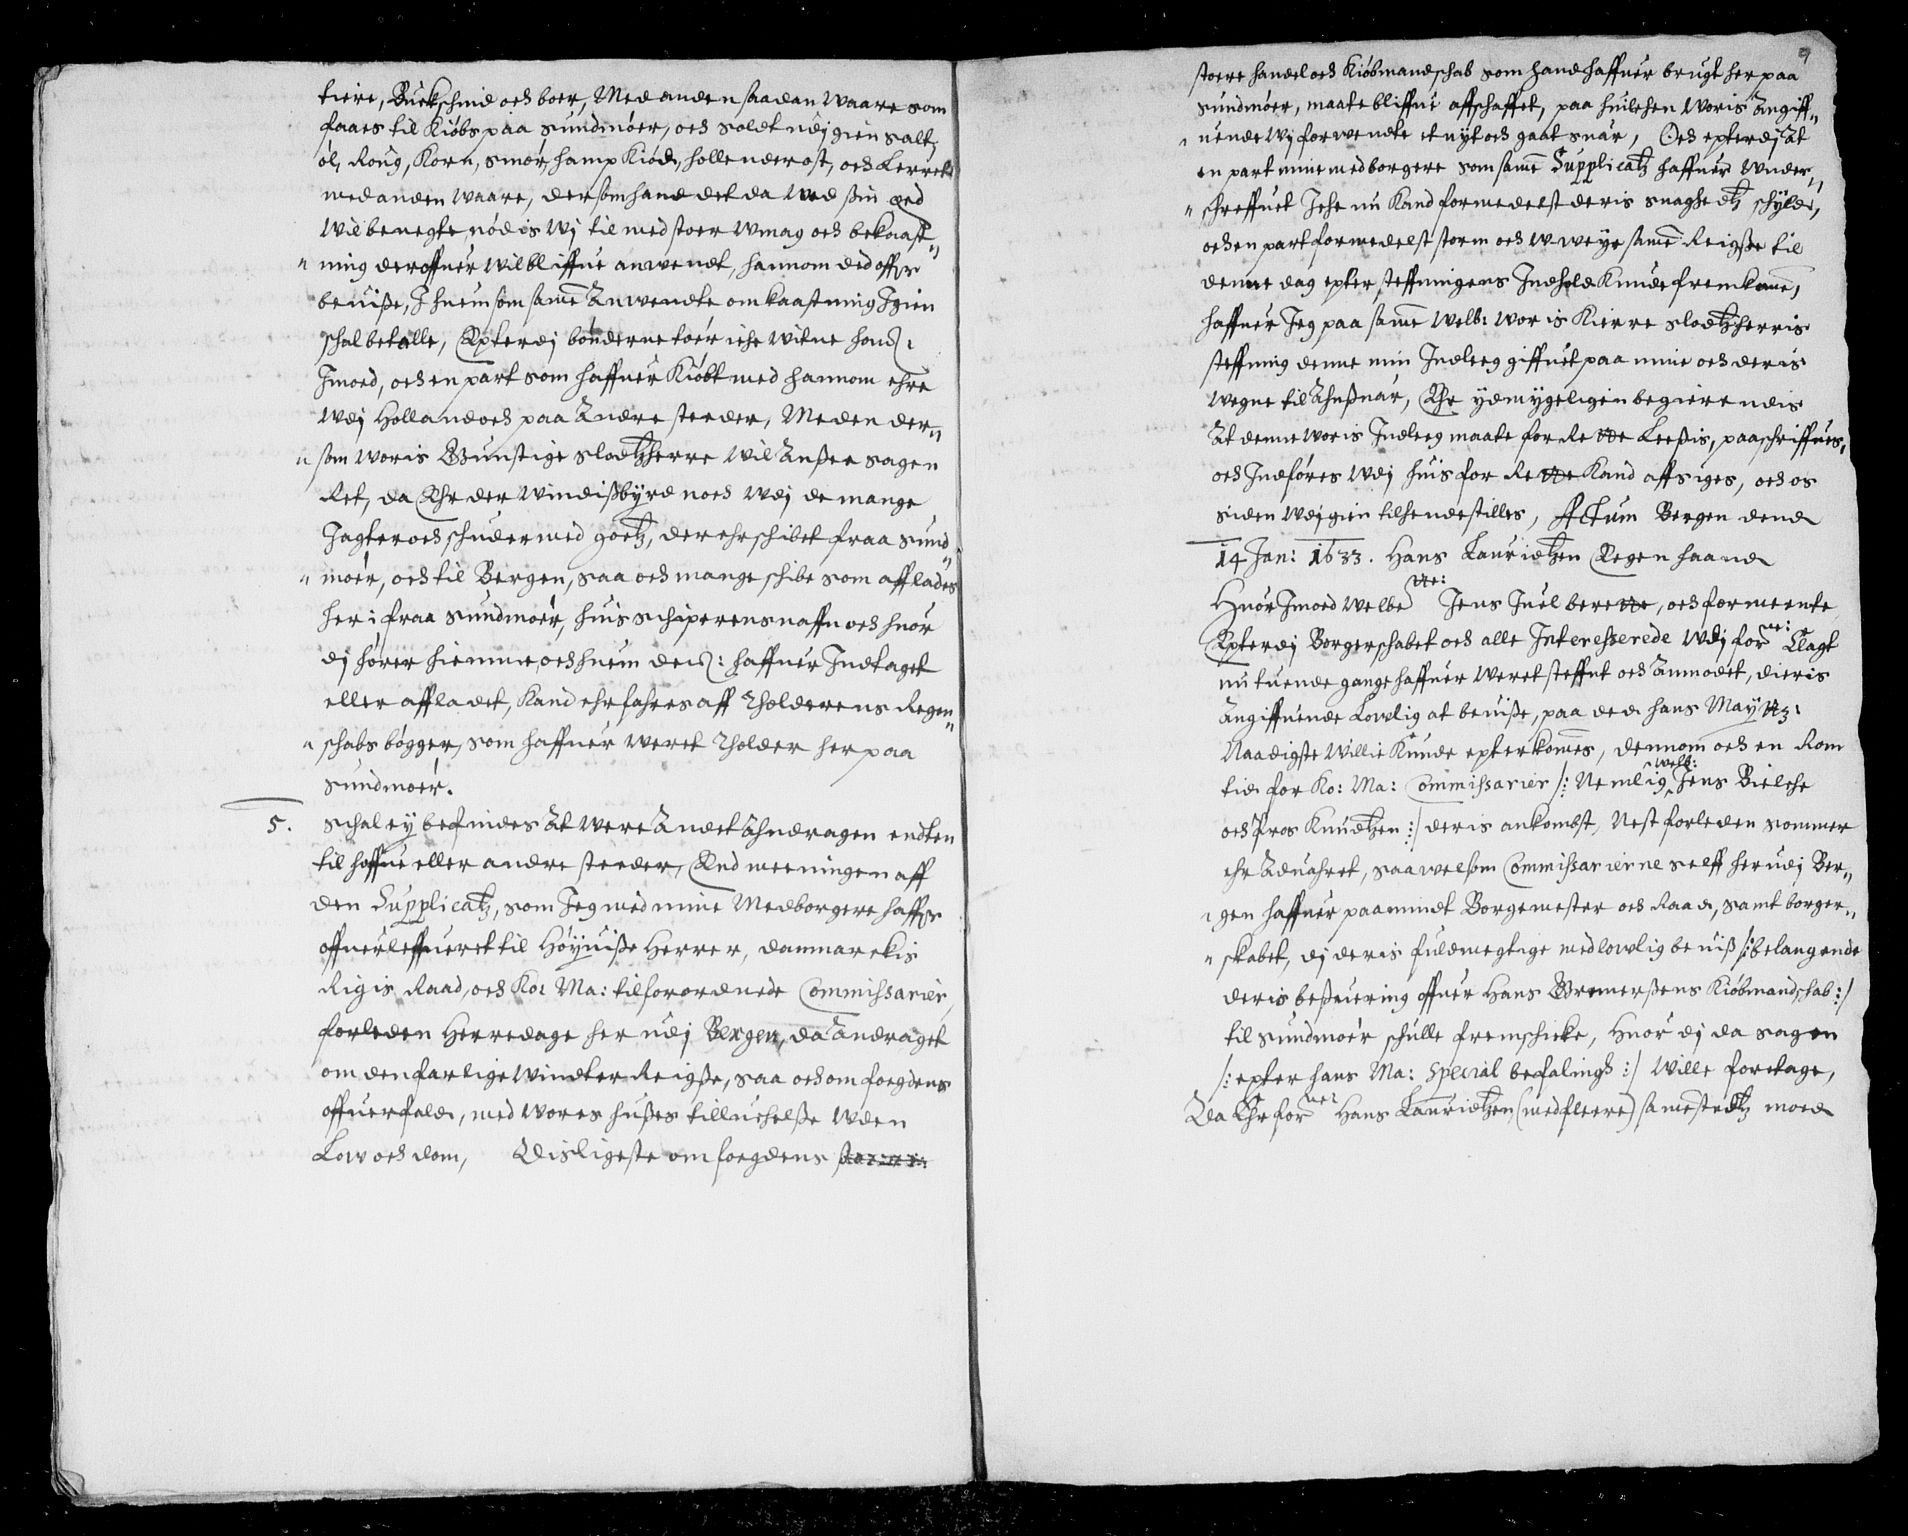 tiere, Buckschind och boer, Med anden saadan Waare som
faaes til Kiøbs paa Sundmøer, och soldt udj gien salt,
øl, Roug, Korn, smør, hamp Kiød, hollenderost, och Lerret
med anden Waare, dersom hand det da Wed ßin eed
Wil benegte nødis Wj til med stoer Wmag och bekaast-
ning deroffuer Wil bliffue anwendt, hannom ded offr
beuiße, J huem som samē Anwendte omkaastning Jgien
schal betalle, Epterdj bønderne toer iche Witne hond:
Jmoed, och en part som haffuer Kiøbt med hannom ehre
Wdj Holland och paa Andre steeder, Meden der-
som Woris Gunstige slodtzherre Wil Anßee sagen
Ret, da Ehr der Windißbyrd noch Wdj de mange
Jagter och schuder med goetz, der ehr schibet fraa Sund-
møer, och til Bergen, saa och mange schibe som affladis
her i fraa Sundmøer, huis schiperens naffn och huor
dj hører hiemme och huem der: haffuer Jndtaget
eller affladet, Kand ehrfahres aff Tholderens Regen-
schabs bøgger, som haffuer weret Tholder her paa
Sundmøer.
5. Schal ey befindes At were Andet Ahndragen endten
til hoffue eller andre steeder, End meeningen aff
den Supplicatz, som Jeg med mine Medborgere haffr
offuerleffueret til Høyuiße Herrer, danmarckis
Rigis Raad, och Ko: Ma: tilforordnede Commissarier,
forleden Herredage her udj Bergen, da Andraget
om den farlige Windter Reigße, saa och om foegdens
offuerfald, med Wores hußes tilluchelße Wden
Low och dom, Disligeste om foegdens
9
stoere handel och Kiøbmandschab som hand haffuer brugt her paa
Sundmøer, maate bliffue affschaffet, paa huilchen Woris Angiff-
uende Wj forwendte et nyt och gaat suar, Och epterdj At
en part mine medborgere som samē Supplicatz haffuer Wnder-
schreffuet Jche nu Kand formedelst deris suaghedtz schyld,
och en part formedelst storm och Wweyr samē Reigße til
denne dag epter steffningens Jndhold Kunde fremkomē,
haffuer Jeg paa samē Welb: Woris Kierre slodtzherris
steffning denne min Jndleeg giffuet paa mine och deris
Wegne til Ahnßuar, Ehr ydmygeligen begierendis
At denne Woris Jndleeg maate for Rette Leeßis, paaschriffues,
och Jndføres Wdj huis for Rette Kand affsiges, och os
siden Wdj gien tilhendestilles, Actum Bergen dend
14 Jan: 1633. Hans Lauridtzen Eegen haand
Huor Jmoed Welbte: Jens Juel berette, och formeente
Epterdj Borgerschabet och alle Jnteresserede Wdj forne: Clagt
nu tuende gange haffuer Weret steffnt och Anmodet, dieris
Angiffuende Lowlig at beuiße, paa ded hans Maytz:
Naadigste Willie Kunde epterkomēs, dennom och en Rom
tid for Ko: Ma: Commissarier /: Nemlig Welb: Jens Bielche
och Fros Knudtzen :/ deris ankombst, Nest forleden sommer
ehr Aduahret, saawelsom Commissarierne selff her udj Ber-
gen haffuer paamindt Borgemester och Raad, samt borger-
skabet, dj deris fuldmegtige med lowlig beuiß /: belangende
deris beßuering offuer Hans Bremerßens Kiøbmandschab :/
til Sundmøer schulle fremschicke, huor dj da sagen
/: epter hans Ma: Special befalingh :/ Wille foretage,
Da Ehr forne: Hans Lauridtzen (med fleere) samestedtz moed